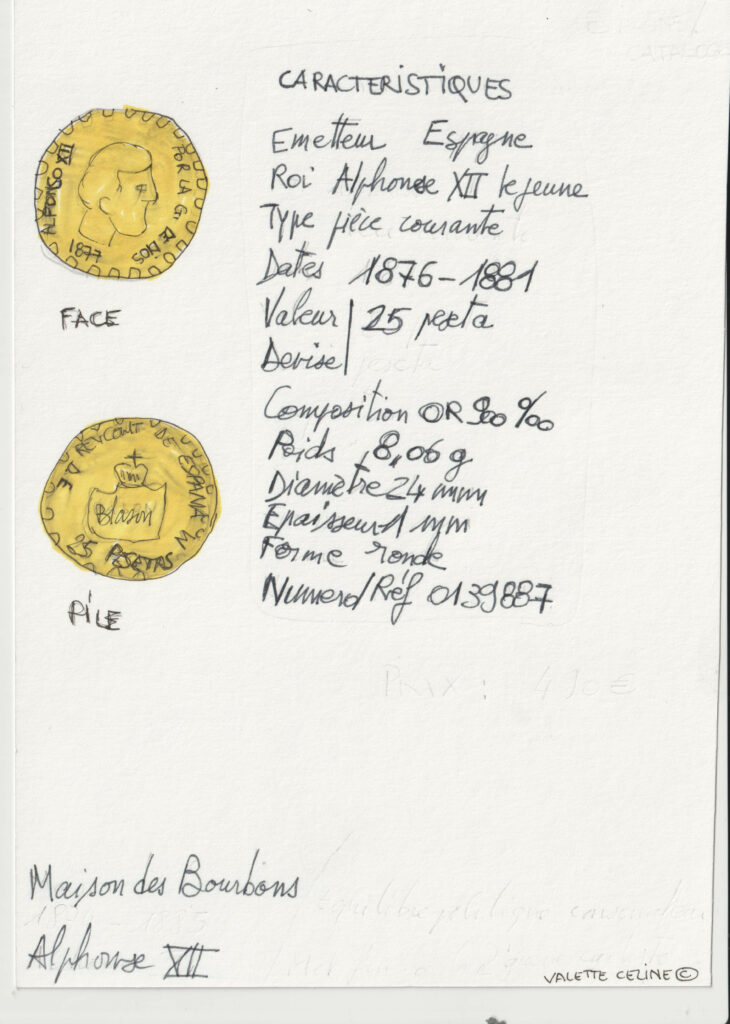 CARACTERISTIQUES
Emetteur Espagne
Roi Alphonse XII le jeune
Type pièce courante
Dates 1876-1881
Valeur | 25 peseta
Devise |
Composition OR 900 ‰
Poids 8,06 g
Diamètre 24 mm
Epaisseur 1 mm
Forme ronde
Numero/Réf 0139887
ALFONSO XII POR LA G. DE DIOS
1877
FACE
DE REYCONT DE ESPANA M
Blason
25 PESETAS
PILE
PRIX : 490 €
Maison des Bourbons
Alphonse XII
VALETTE CELINE ©